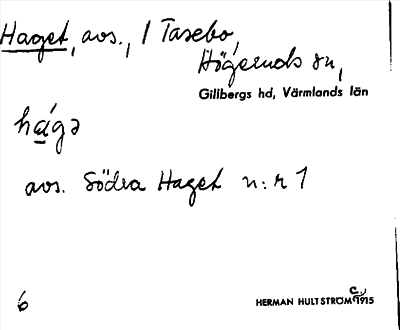 Haget, avs., / Tasebo,
Högeruds sn,
Gillbergs hd, Värmlands län
hágə
avs. Södra Haget n:r 1
6
HERMAN HULTSTRÖM c. 1915